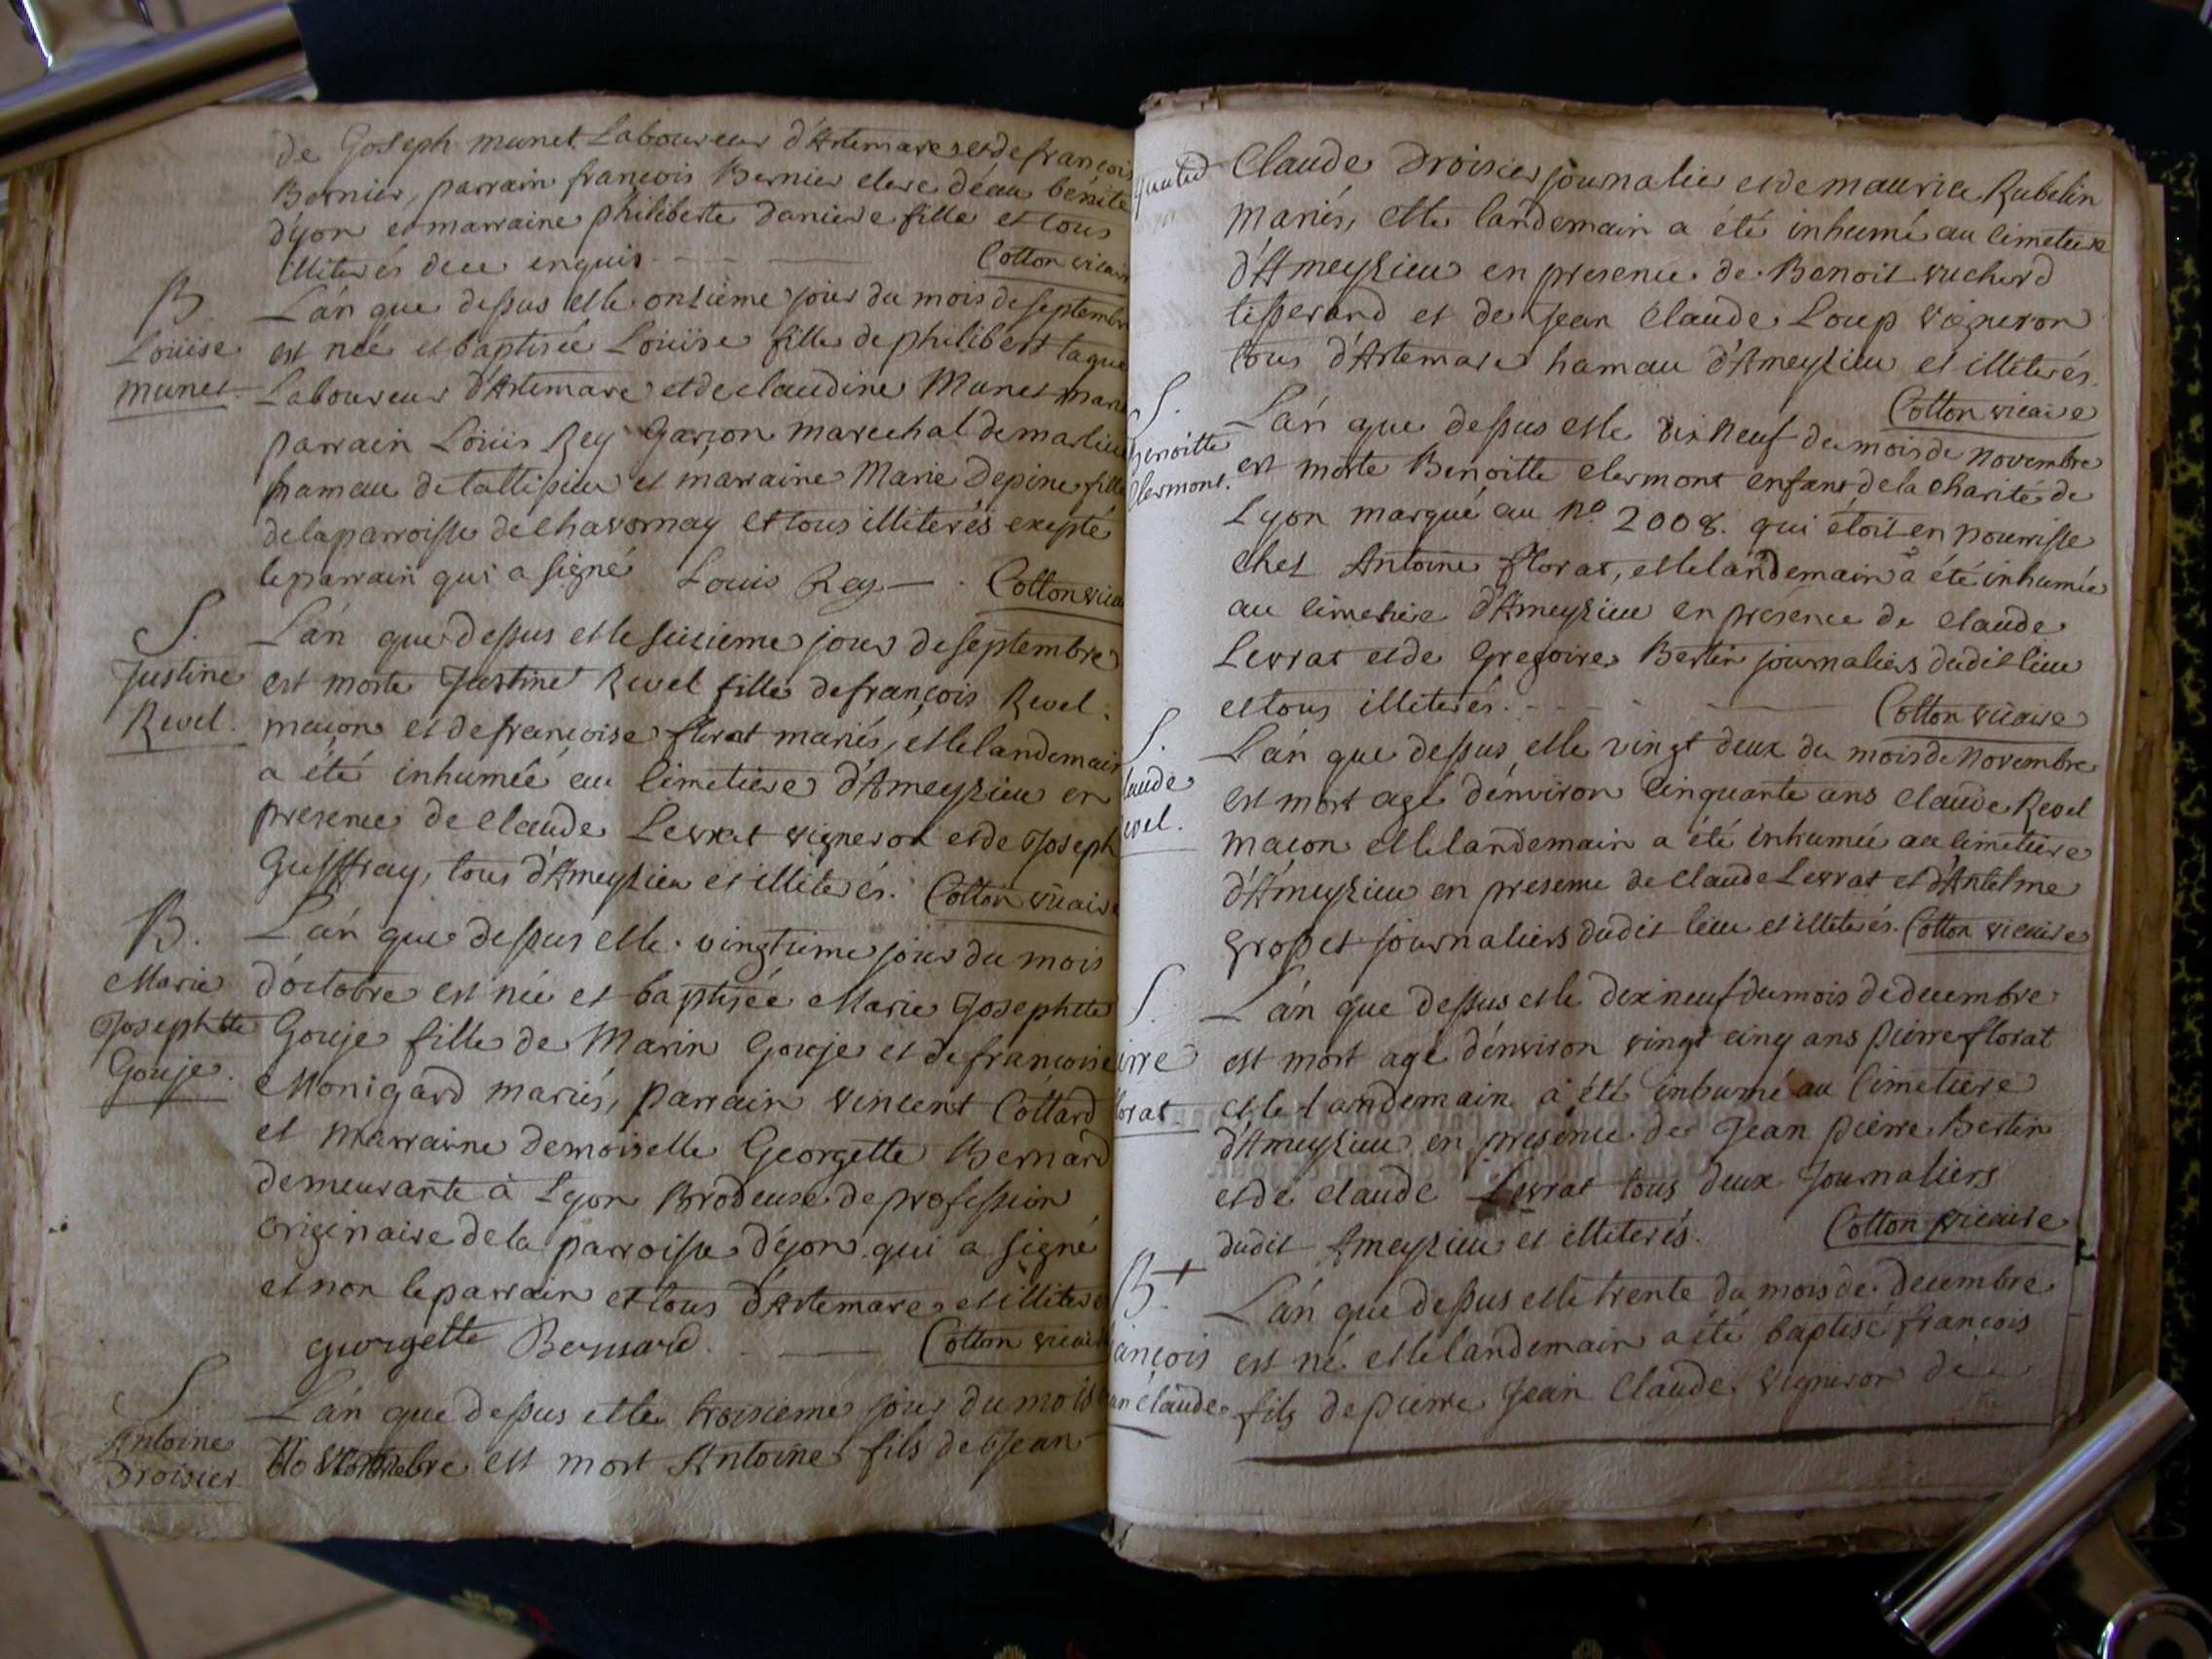 de Joseph munet Laboureur d'Artemare et de françois
Bernier, parrain françois Bernier clerc d'éau bénite
d'yon et marraine philiberte daniere fille et tous
illiterés de ce enquis Cotton vicaire
B. Lán que dessus et le onzieme jour du mois de septembre
Loüise est née et baptisée Loüise fille de philibert
munet Laboureur d'Artemare et de claudine Munet
parrain Loüis Rey Garçon marechal de marlieu
hameau de tallissieu et marraine Marie Depine fille
de la parroisse de chavornay et tous illiterés exepté
le parrain qui a signé Louis Rey Cotton vicaire
S. Lán que dessus et le seizieme jour de septembre
Justine est morte Justine Revel fille de françois Revel
Revel. maçon et de françoise florat mariés, et le landemain
a été inhumée au cimetiere d'Ameyzieu en
presence de claude Levrat vigneron et de Joseph
Guffray, tous d'Ameyzieu et illiterés. Cotton vicaire
B. Lán que dessus et le vingtieme jour du mois
Marie d'octobre est née et baptisée Marie Josephtte
Josephtte Gouje fille de Marin Gouje et de françoise
Gouje. Monigard mariés, parrain vincent Cottard
et marraine demoiselle Georgette Bernard
demeurante à Lyon Brodeuse de profession
originaire de la parroisse d'éyon qui a signé
et non le parrain et tous d'Artemare et illiterés
georgette Bernard. Cotton vicaire
S Lán que dessus et le troisieme jour du mois
Antoine Novembre est mort Antoine fils de Jean
Droisier
Claude Droisier journalier et de maurice Rubelin
mariés, et le landemain a été inhumé au cimetiere
d'Ameyzieu en presence de Benoit vucherd
tisserand et de Jean Claude Loup vigneron
tous d'Artemare hamau d'Ameyzieu et illiterés.
Cotton vicaire
S. Lán que dessus et le dix neuf du mois de novembre
Benoitte est morte Benoitte clermont enfant de la charité de
Clermont. Lyon marqué au no 2008. qui étoit en nourrisse
chez Antoine florat, et le landemain a été inhumée
au cimetiere d'Ameyzieu en présence de claude
Levrat et de Gregoire Bertin journaliers dudit lieu
et tous illiterés. Cotton vicaire
S. Lán que dessus et le vingt deux du mois de Novembre
laude est mort agé d'énviron Cinquante ans claude Revel
evel. maçon et le landemain a été inhumée au cimetiere
d'Ameyzieu en presence de claude Levrat et d'Antelme
grosset journaliers dudit lieu et illiterés. Cotton vicaire
S. Lán que dessus et le dix neuf du mois de decembre
ierre est mort agé d'énviron vingt cinq ans pierre florat
lorat. et le landemain a été inhumé au Cimetiere
d'Ameyzieu en presence de Jean pierre Bertin
et de claude Levrat tous deux Journaliers
dudit Ameyzieu et illiterés. Cotton vicaire
B. + Lán que dessus et le trente du mois de decembre
ançois est né et le landemain a été baptisé françois
an claude fils de pierre Jean Claude vigneron de